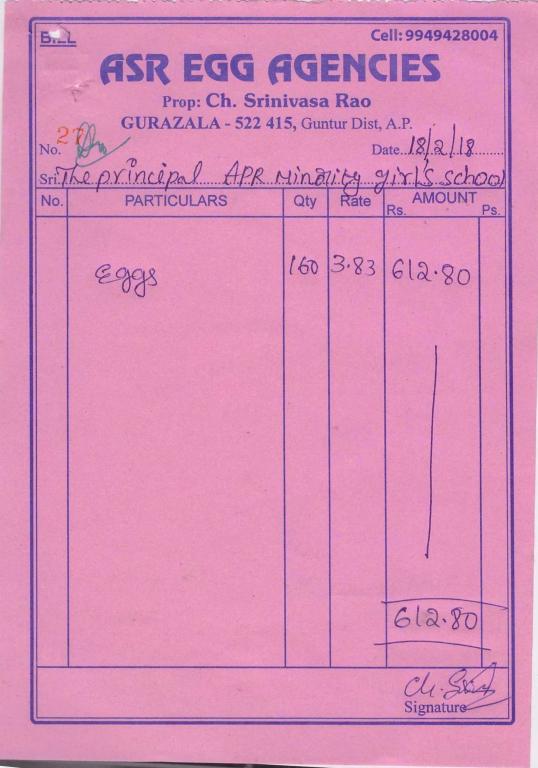 BILL
Cell: 9949428004
ASR EGG AGENCIES
Prop: Ch. Srinivasa Rao
GURAZALA - 522 415, Guntur Dist, A.P.
No. 27 Date 18/2/18
Sri. The principal APR Minority girl's school
No. PARTICULARS Qty Rate AMOUNT
Rs. Ps.
Eggs 160 3.83 612.80
612.80
Signature